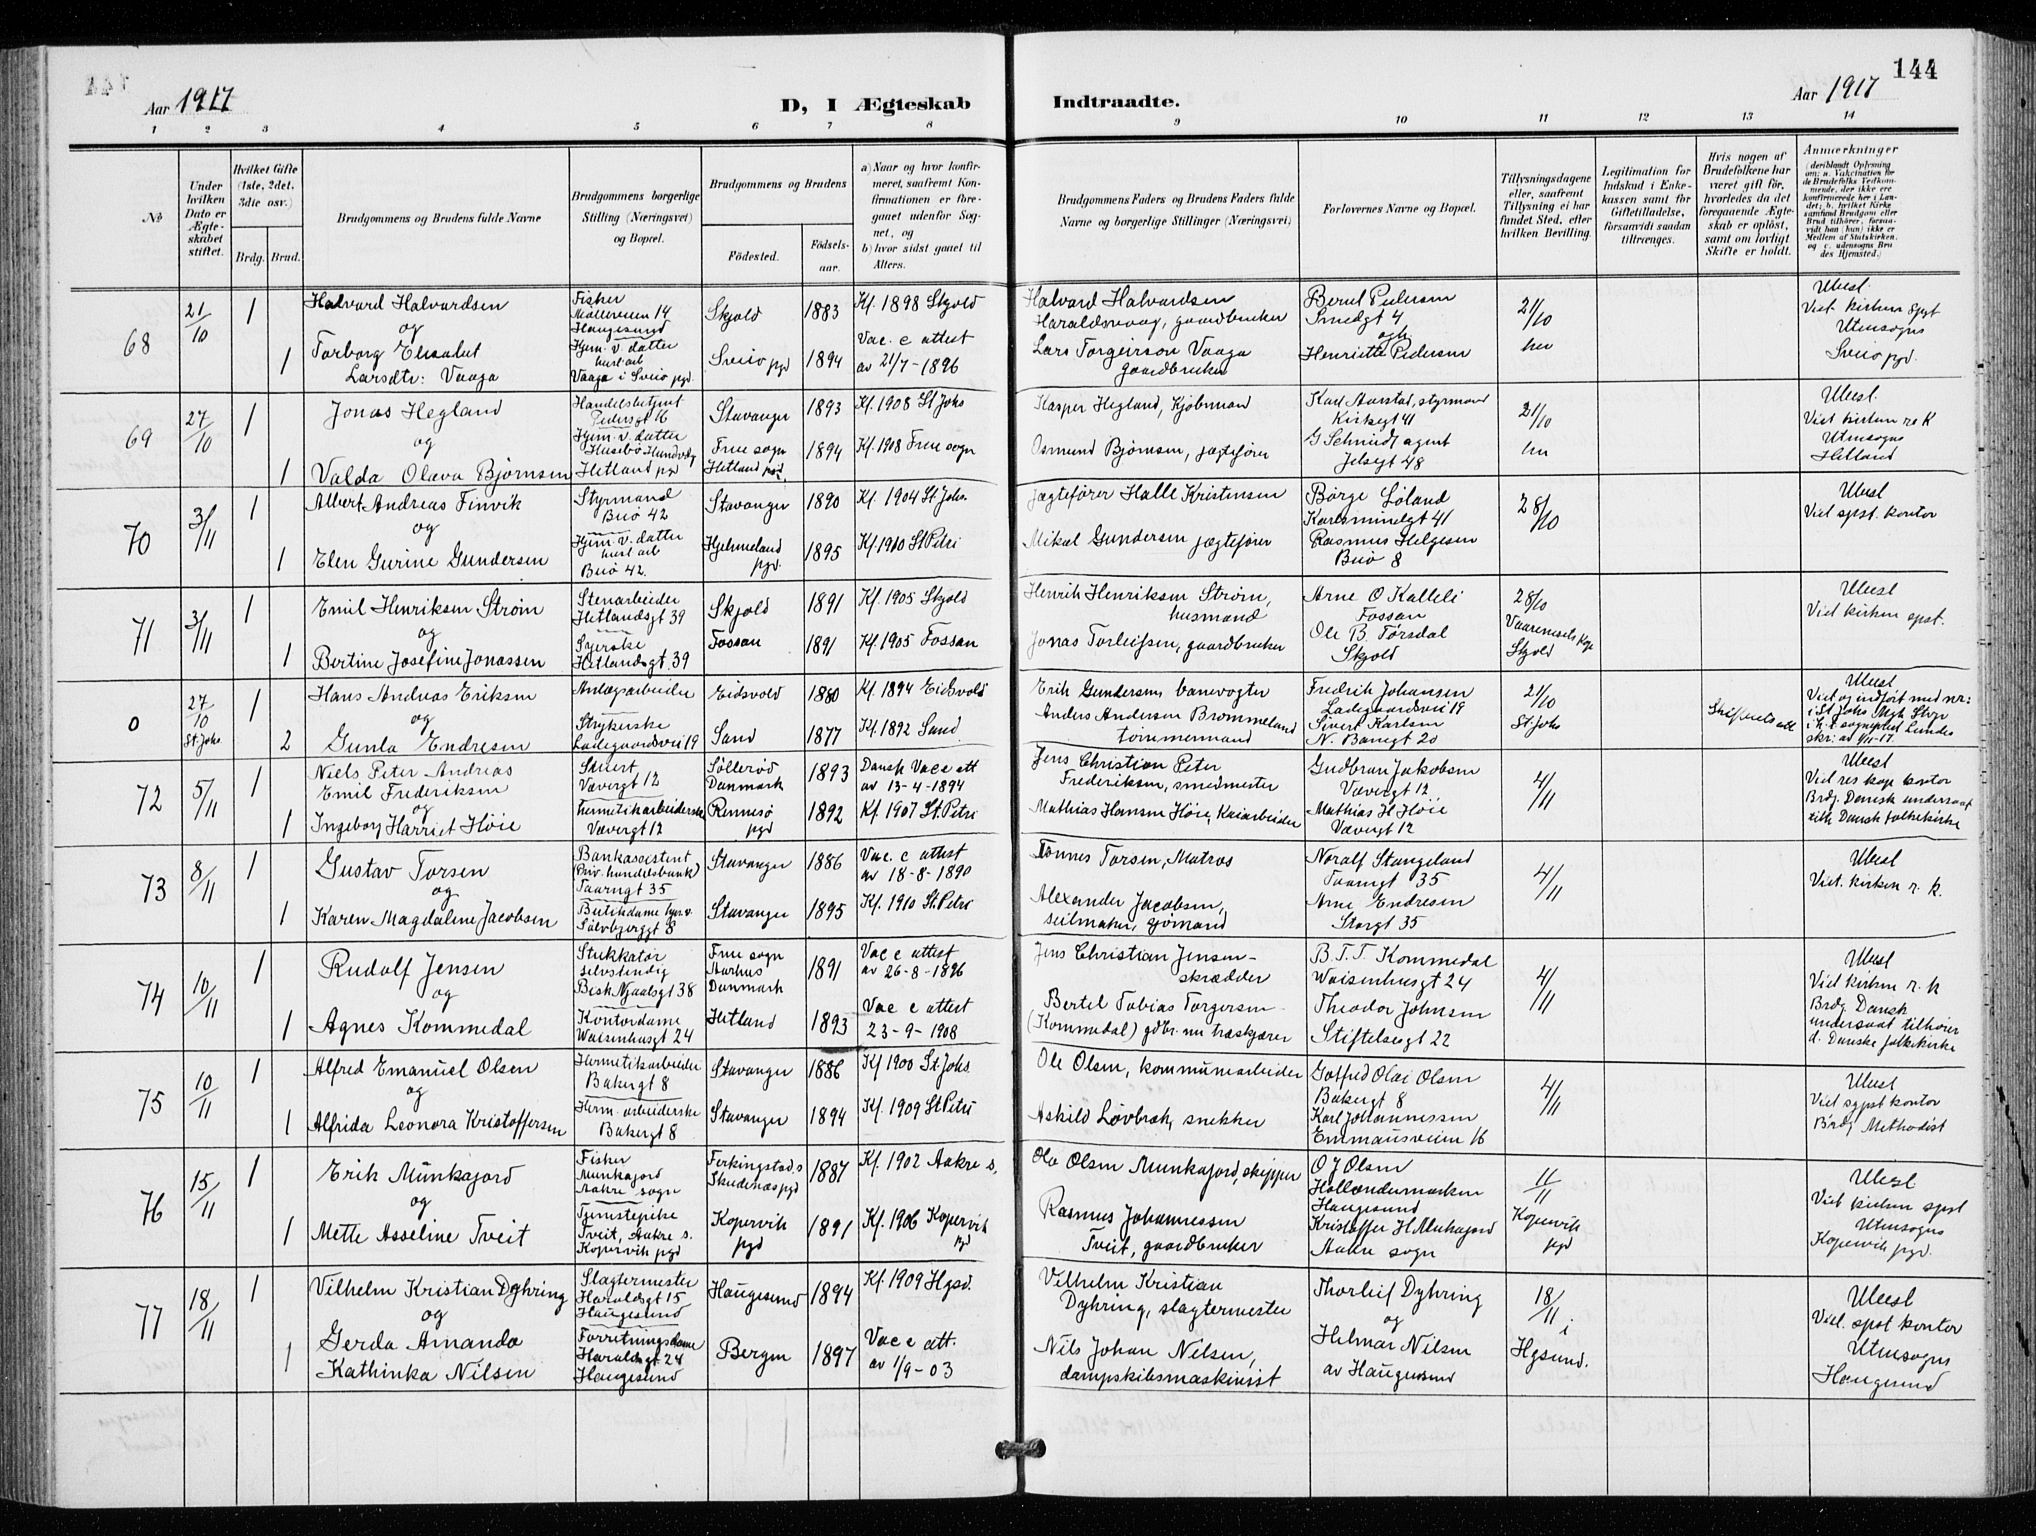 144
Aar 1917
D, I Ægteskab
Indtraadte.
Aar 1917
1 2 3 4 5 6 7 8 9 10 11 12 13 14
No
Under hvilken Dato er Ægteskabet stiftet.
Hvilket Gifte (1ste, 2det, 3die osv.)
Brdg. Brud.
Brudgommens og Brudens fulde Navne
Brudgommens borgerlige Stilling (Næringsvei) og Bopæl.
Brudgommens og Brudens
Fødested.
Fødselsaar.
a) Naar og hvor konfirmeret, saafremt Konfirmationen er foregaaet udenfor Sognet, og
b) hvor sidst gaaet til Alters.
Brudgommens Faders og Brudens Faders fulde Navne og borgerlige Stillinger (Næringsvei)
Forlovernes Navne og Bopæl.
Tillysningsdagene eller, saafremt Tillysning ei har fundet Sted, efter hvilken Bevilling.
Legitimation for Indskud i Enkekassen samt for Giftetilladelse, forsaavidt saadan tiltrænges.
Hvis nogen af Brudefolkene har været gift før, hvorledes da det foregaaende Ægteskab er opløst, samt om lovligt Skifte er holdt.
Anmærkninger
68
21/10
1
Halvard Halvardsen
og
1
Torborg Elisabet
Larsdtr: Vaaga
Fisker
Møllerveien 14
Haugesund
Hjem. v. datter
husl arb
Vaaga i Sveio pgd
Skjold
Sveio pgd
1883
1894
Kf. 1898 Skjold
Vac. c attest
av 21/7-1896
Halvard Halvardsen
gaardbruker
Lars Torgeirson Vaaga
gaardbruker
Bernt Pedersen
Smedgt 4
og
Henriette Pedersen
21/10
her
Ubesl.
Viet. kirken spst
Utensogns
Sveio pgd.
69
27/10
1
Jonas Hegland
og
1
Valda Olava Bjørnsen
Handelsbetjent
Pedersgt 16
Hjem. v. datter
Husebø Hundvåg
Hetland pgd
Stavanger
Frue sogn
Hetland pgd.
1893
1894
Kf. 1908 St Johs
Kf. 1908 Frue sogn
Kasper Hegland, Kjøbmand
Osmund Bjørnsen, jægtefører
Karl Aarstad, styrmand
Kirkegt 41
G Schmidt agent
Jelsegt 48
21/10
her
Ubesl.
Viet kirken re K
Utensogns
Hetland
70
3/11
1
Albert Andreas Finvik
og
1
Elen Gurine Gundersen
Styrmand
Buø 42
Hjem. v. datter
husl arb
Buø 42.
Stavanger
Hjelmeland
pgd.
1890
1895
Kf. 1904 St Johs.
Kf. 1910 St Petri
Jægtefører Halle Kristensen
Mikal Gundersen jægtefører
Børge Løland
Karlsminnegt 41
Rasmus Helgesen
Buø 8
28/10
Ubesl
Viet spst. kontor
71
3/11
1
Emil Henriksen Strøm
og
1
Bertine Josefine Jonassen
Stenarbeider
Hetlandsgt 39
Syerske
Hetlandsgt 39
Skjold
Fossan
1891
1891
Kf. 1905 Skjold
Kf. 1905 Fossan
Henrik Henriksen Strøm,
husmand
Jonas Torleifsen, gaardbruker
Arne O Kalleli
Fossan
Ole B. Førsdal
Skjold
28/10
Skjold
Ubesl
Viet kirken spst.
0
27/10
St. Johs.
1
Hans Andreas Eriksen
og
2
Gunla Endresen
Anlægsarbeider
Strykerske
Ladegaardsvei 19
Eidsvold
Sand
1880
1877
Kf. 1894 Eidsvold
Kf. 1892 Sand
Erik Gundersen, banevogter
Anders Andersen Brommeland
tømmermand
Fredrik Johansen
Ladegaardsvei 19
Sivert Karlsen
N. Banegt 20
21/10
St Johs
Skifteretsatt
Ubesl
Viet og indført med nr:
i St Johs Mgh Stvgr
72
5/11
1
Niels Peter Andreas
Emil Frederiksen
og
1
Ingeborg Harriet Høie
Vævergt 12
hermetikarbeiderske
Vævergt 12
Søllerød
Danmark
Rennesø
pgd
1893
1892
Dansk Vac c att
av 13-4-1894
Kf. 1907 St. Petri
Jens Christian Peter
Frederiksen, smedmester
Mathias Hansen Høie, Kaiarbeider
Gudbran Jakobsen
Vævergt 12
Mathias H Høie
Vævergt 12
4/11
Ubesl
Viet res kap kontor
Brdg. Dansk undersaat
tilh Dansk folkekirke
73
8/11
1
Gustav Torsen
og
1
Karen Magdaline Jacobsen
Bankassistent
(Priv. handelsbank)
Taarngt 35
Butikdame
Sølvbjerggt 8
Stavanger
Stavanger
1886
1895
Vac. c attest
av 18-8-1890
Kf. 1910 St. Petri
Tønnes Torsen, Matros
Alexander Jacobsen,
seilmaker, sjømand
Noralf Stangeland
Taarngt 35
Arne Endresen
Storgt 35
4/11
Ubesl
Viet. kirken r. k.
74
10/11
1
Rudolf Jensen
og
1
Agnes Kommedal
Stukkatør
selvstendig
Bisk. Njaalsgt 38
Kontordame
Waisenhusgt 24
Frue sogn
Aarhus
Danmark
Hetland
1891
1893
Vac c attest
av 26-8-1896
Vac c attest
23-9-1908
Jens Christian Jensen-
skrædder
Bertel Tobias Torgersen
(Kommedal) gdbr. nu træskjærer
B. T. T. Kommedal
Waisenhusgt 24
Theodor Johnsen
Stiftelsesgt 22
4/11
Ubesl
Viet kirken r. k
Brdg. Dansk
undersaat tilhører
d. Danske folkekirke
75
10/11
1
Alfred Emanuel Olsen
og
1
Alfrida Leonora Kristoffersen
Hermetikarbeider
Bakergt 8
Herm. arbeiderske
Bakergt 8
Stavanger
Stavanger
1886
1894
Kf 1900 St Johs
Kf. 1909 St Petri
Ole Olsen, kommunearbeider
Askild Løvbrek, snekker
Gotfred Olai Olsen
Bakergt 8
Karl Johannessen
Emmausveien 16
4/11
Ubesl
Viet spst kontor
Brdg Methodist
76
15/11
1
Erik Munkajord
og
1
Mette Asseline Tveit
Fisker
Munkajord
Aakre sogn
Tjenestepike
Tveit, Aakre s.
Kopervik pgd
Ferkingstad s
Skudenes pgd
Kopervik
pgd
1887
1891
Kf. 1902 Aakre s.
Kf. 1906 Kopervik
pgd
Ole Olsen Munkajord, skipper
Rasmus Johannessen
Tveit, gaardbruker
O J Olsen
Haugesund
Kristoffer H Munkajord
Aakre sogn
11/11
Kopervik
pgd
Ubesl
Viet kirken spst
Utensogns
Kopervik pgd.
77
18/11
1
Vilhelm Kristian Dyhring
og
1
Gerda Amanda
Kathinka Nilsen
Slagtermester
Haraldsgt 15
Haugesund
Forretningsdame
Haraldsgt 24
Haugesund
Haugesund
Bergen
1894
1897
Kf. 1909 Hgsd.
Vac c att.
av 1/9-03
Vilhelm Kristian
Dyhring, slagtermester
Nils Johan Nilsen,
dampskibsmaskinist
Thorleif Dyhring
og
Helmar Nilsen
av Haugesund
18/11
i
Hgsund.
Ubesl
Viet. spst kontor
Utensogns
Haugesund